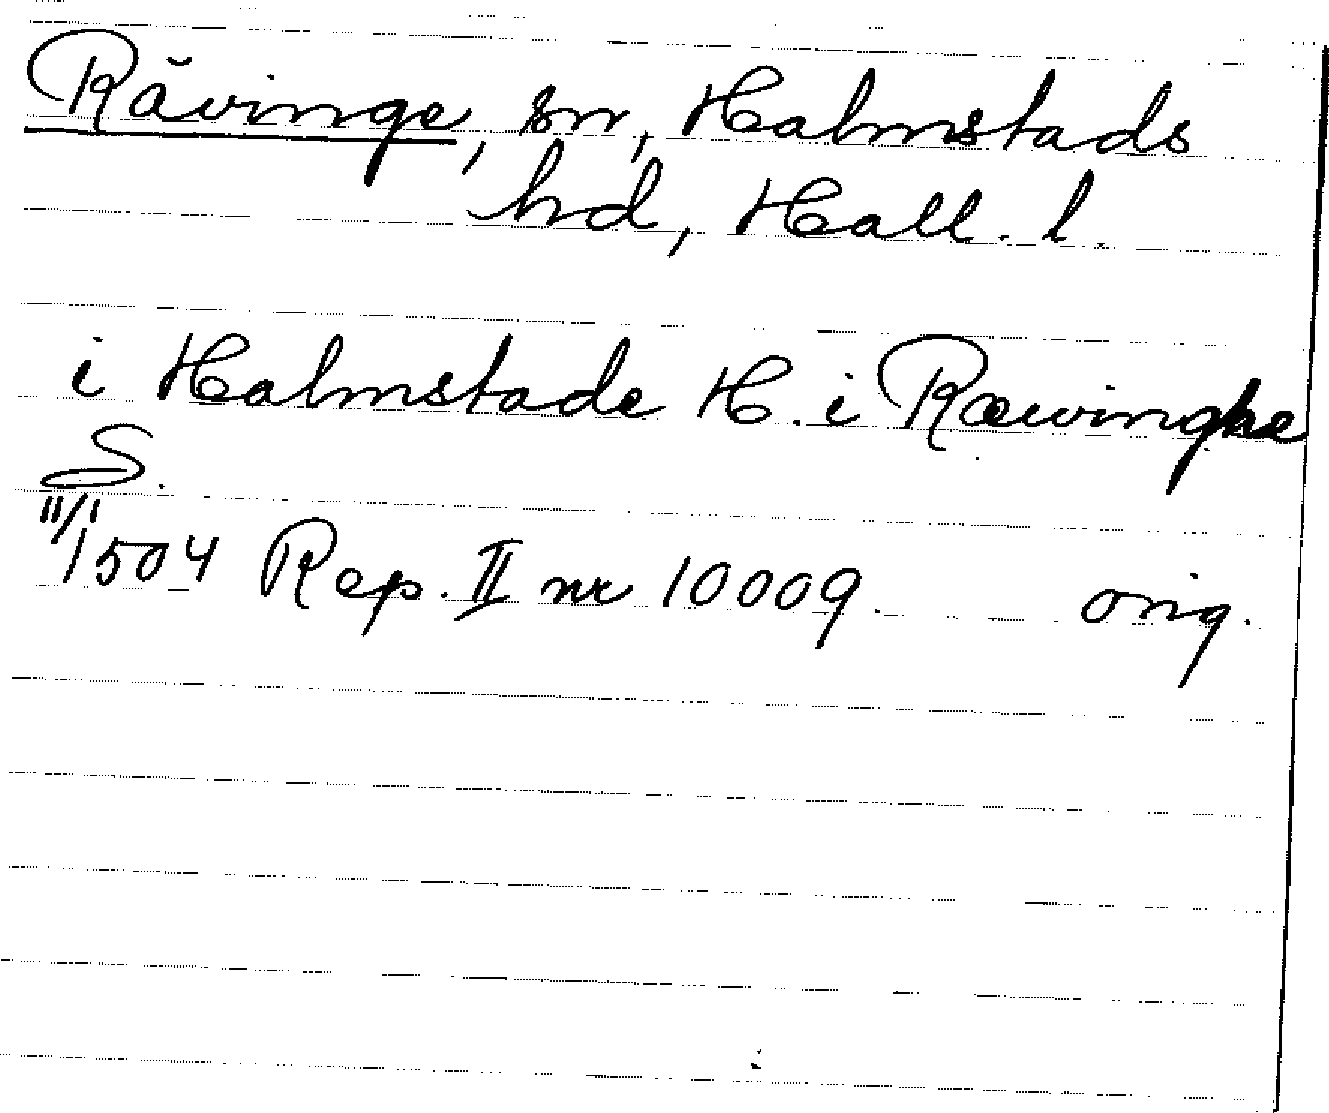 Rävinge, sn, Halmstads
hd, Hall. l.
i Halmstade H. i Ræwinghe
S.
11/1 1504 Rep. II nr 10009. orig.